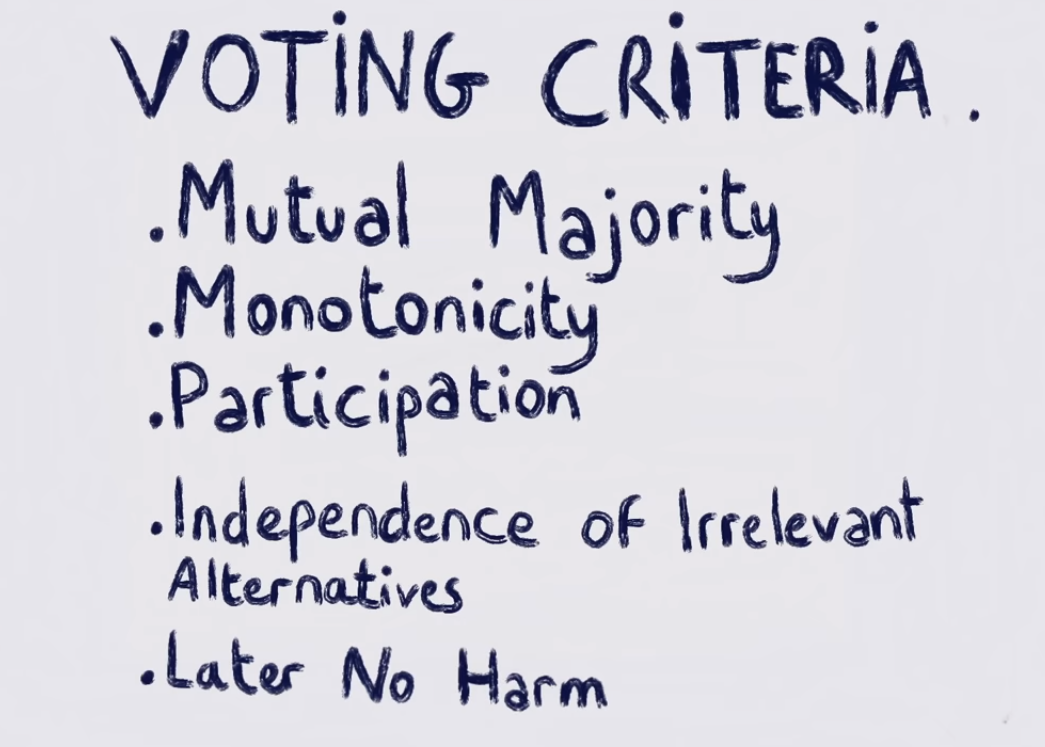 VOTING CRITERIA.
.Mutual Majority
.Monotonicity
.Participation
.Independence of Irrelevant
Alternatives
.Later No Harm